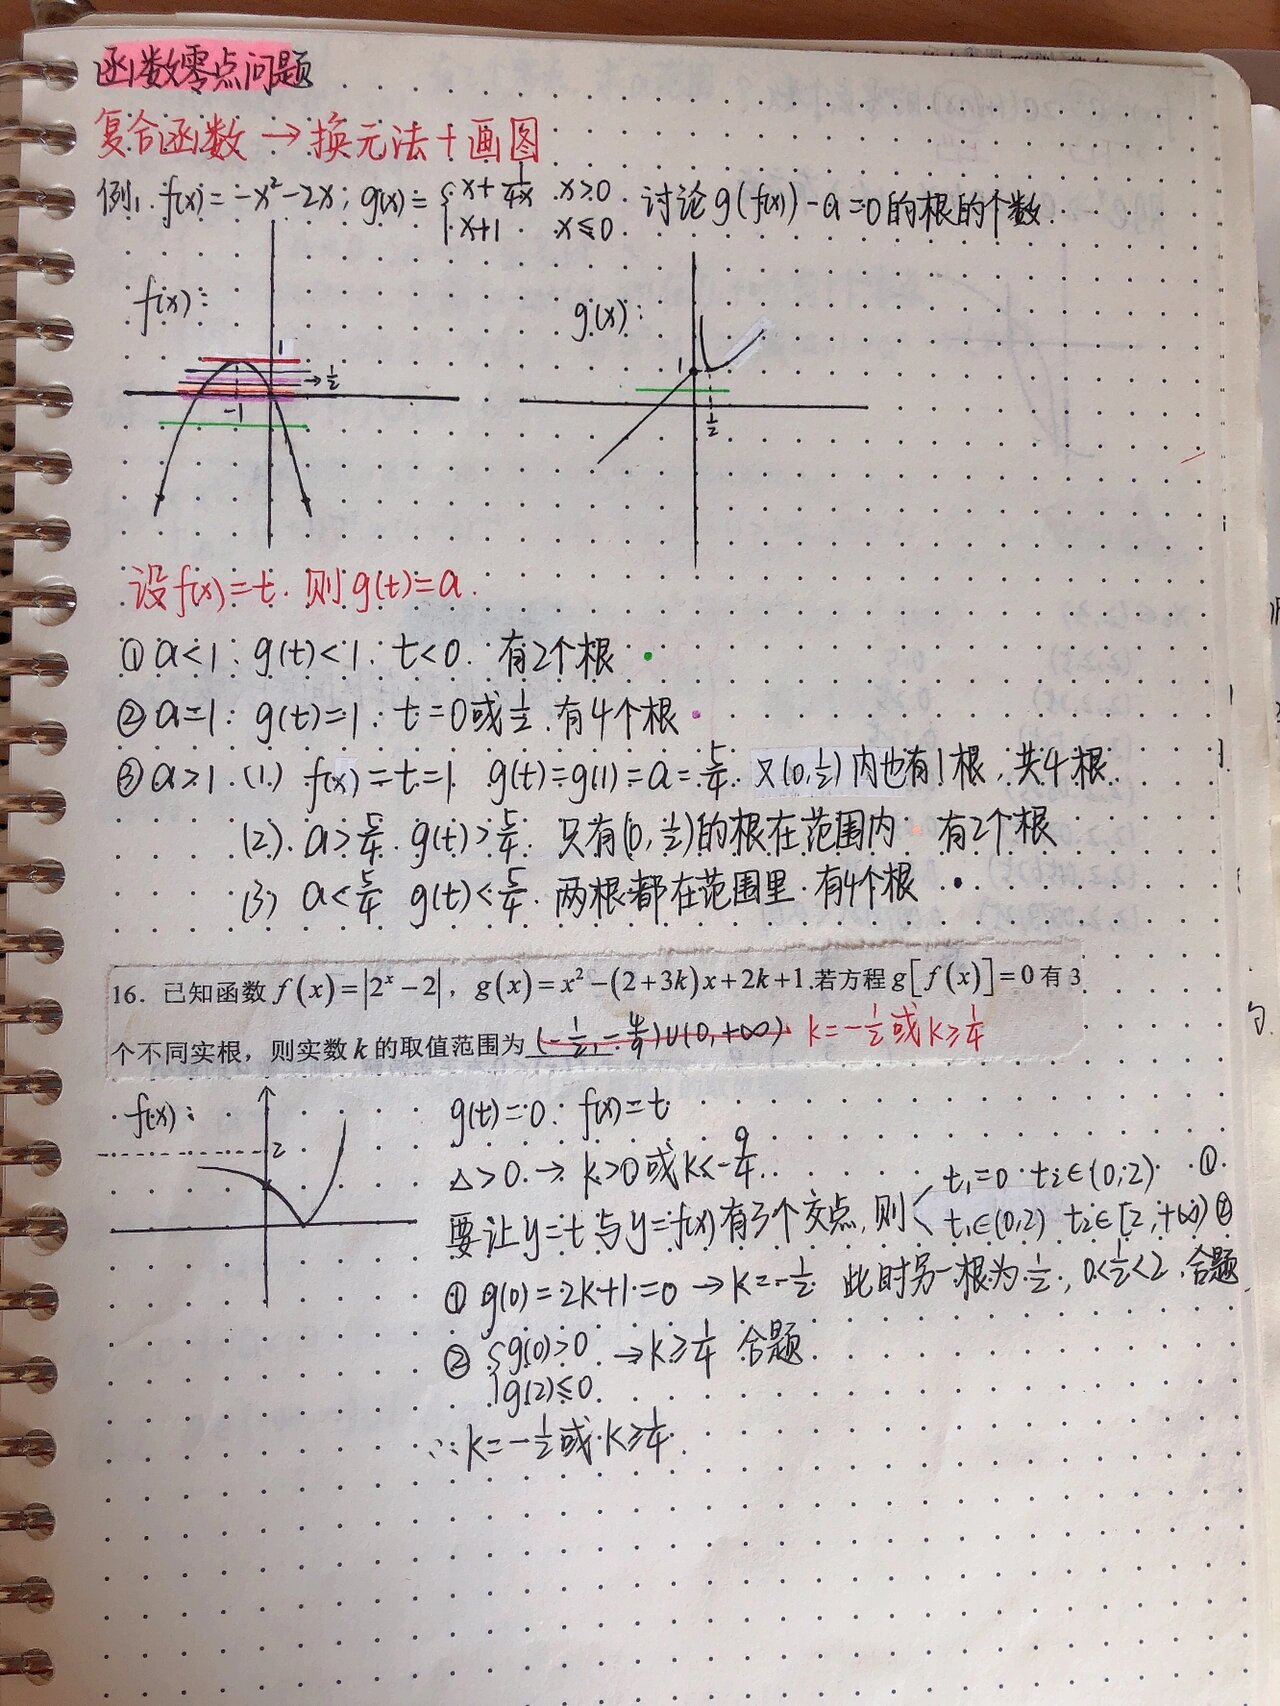 函数零点问题
复合函数 → 换元法+画图
例1. f(x)=-x²-2x; g(x)={x+1/4x x>0. 讨论g(f(x))-a=0的根的个数.
x+1 x≤0.
f(x):
g(x):
1
→1/2
-1
1
1/2
设f(x)=t. 则g(t)=a.
①a<1: g(t)<1. t<0. 有2个根
②a=1: g(t)=1. t=0或1/2. 有4个根
③a>1. (1.) f(x)=t=1. g(t)=g(1)=a=5/4. 又(0,1/2)内也有1根, 共4根.
(2). a>5/4. g(t)>5/4. 只有(0,1/2)的根在范围内. 有2个根
(3) a<5/4 g(t)<5/4. 两根都在范围里. 有4个根
16. 已知函数f(x)=|2^x-2|, g(x)=x²-(2+3k)x+2k+1.若方程g[f(x)]=0有3
个不同实根,则实数k的取值范围为(-1/2,-4/9)∪(0,+∞) k=-1/2或k≥1/4
f(x):
2
g(t)=0. f(x)=t.
△>0. → k>0或k<-9/4.
要让y=t与y=f(x)有3个交点, 则
t₁=0 t₂∈(0,2). ①
t₁∈(0,2) t₂∈[2,+∞) ②
① g(0)=2k+1=0 →k=-1/2. 此时另一根为1/2, 0<1/2<2. 合题
② {g(0)>0 →k≥1/4 合题.
g(2)≤0.
∴k=-1/2或k≥1/4.